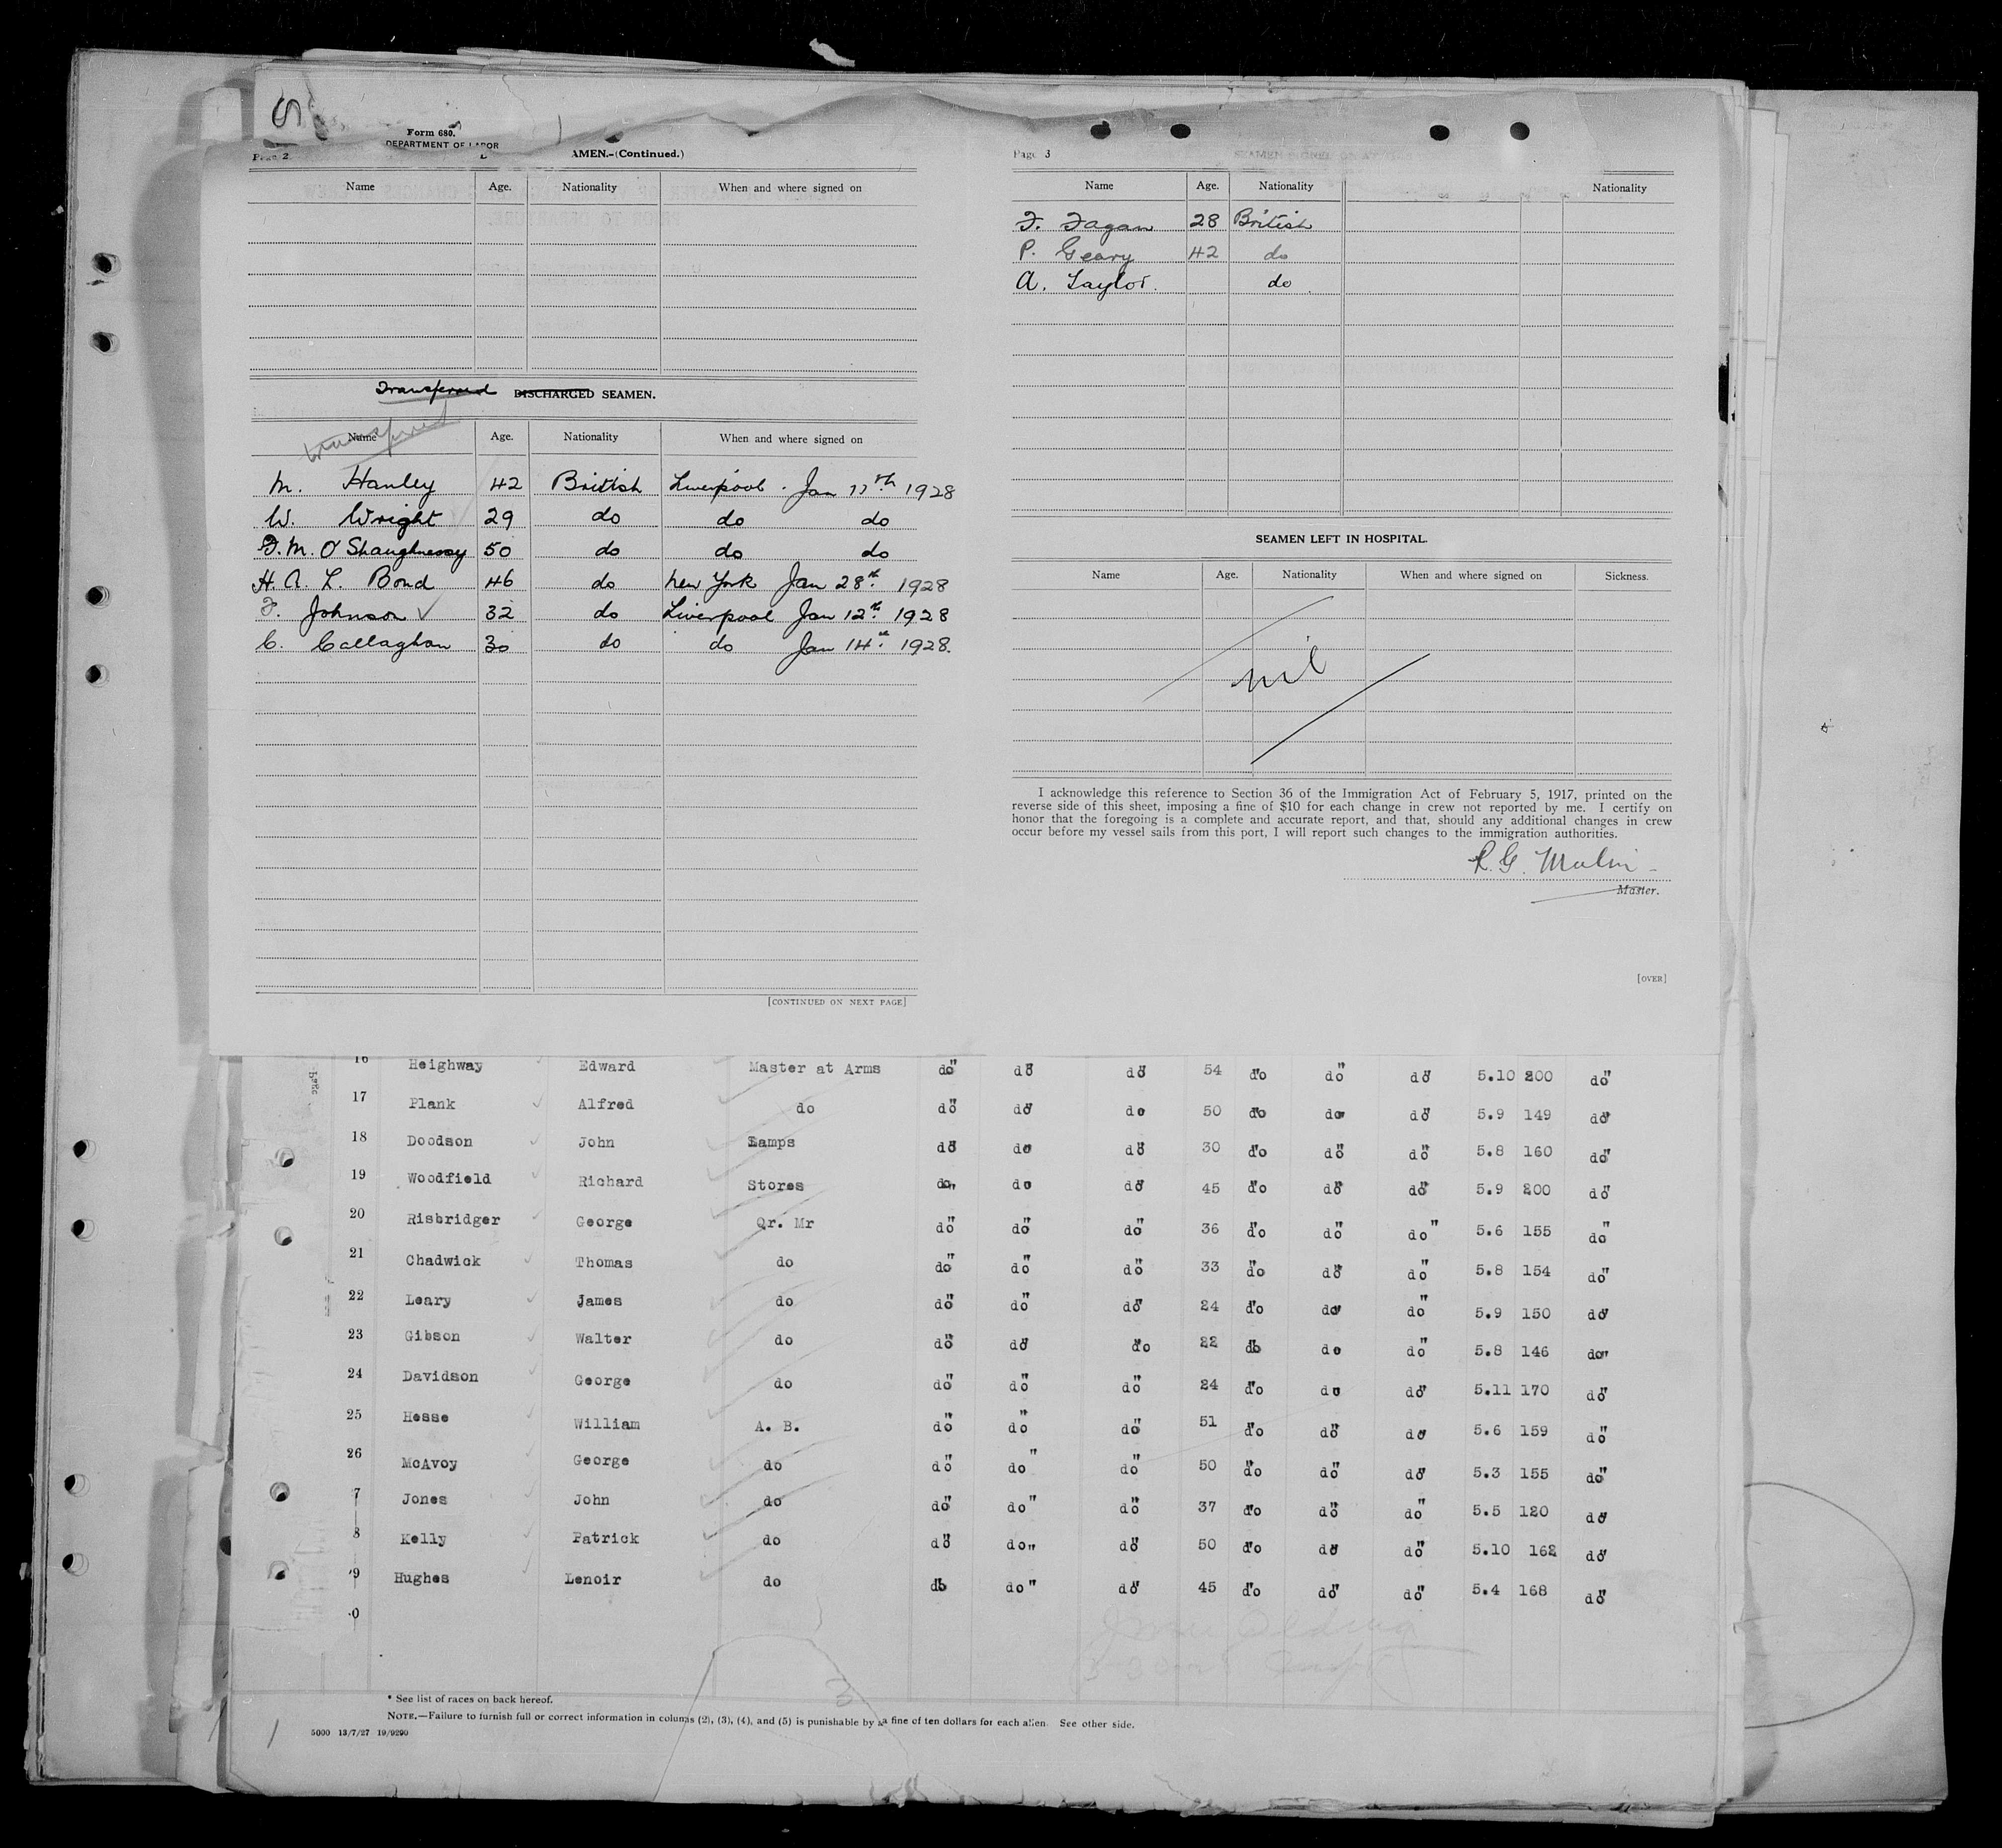 Form 680.
DEPARTMENT OF LABOR
Page 2
AMEN.-(Continued.)
Name Age. Nationality When and where signed on
Transferred DISCHARGED SEAMEN.
transferred
Name Age. Nationality When and where signed on
M. Hanley 42 British Liverpool. Jan 11th 1928
W. Wright 29 do do do
F. M. O'Shaughnessy 50 do do do
H. A. L. Bond 46 do New York Jan 28th. 1928
F. Johnson ✓ 32 do Liverpool Jan 12th. 1928
C. Callaghan 30 do do Jan 14th. 1928.
[CONTINUED ON NEXT PAGE]
Page 3
Name Age. Nationality Nationality
F. Fagan 28 British
P. Geary 42 do
A. Taylor. do
SEAMEN LEFT IN HOSPITAL.
Name Age. Nationality When and where signed on Sickness.
nil
I acknowledge this reference to Section 36 of the Immigration Act of February 5, 1917, printed on the
reverse side of this sheet, imposing a fine of $10 for each change in crew not reported by me. I certify on
honor that the foregoing is a complete and accurate report, and that, should any additional changes in crew
occur before my vessel sails from this port, I will report such changes to the immigration authorities.
R. G. Malin
Master.
[OVER]
16 Heighway Edward Master at Arms do" do" do" 54 do" do" do" 5.10 200 do"
17 Plank Alfred do do" do" do 50 do" do" do" 5.9 149 do"
18 Doodson John Lamps do" do" do" 30 do" do" do" 5.8 160 do"
19 Woodfield Richard Stores do" do do" 45 do" do" do" 5.9 200 do"
20 Risbridger George Qr. Mr do" do" do" 36 do" do" do" 5.6 155 do"
21 Chadwick Thomas do do" do" do" 33 do" do" do" 5.8 154 do"
22 Leary James do do" do" do" 24 do" do" do" 5.9 150 do"
23 Gibson Walter do do" do" do" 22 do" do do" 5.8 146 do"
24 Davidson George do do" do" do" 24 do" do do" 5.11 170 do"
25 Hesse William A. B. do" do" do" 51 do" do" do" 5.6 159 do"
26 McAvoy George do do" do" do" 50 do" do" do" 5.3 155 do"
7 Jones John do do" do" do" 37 do" do" do" 5.5 120 do"
8 Kelly Patrick do do" do" do" 50 do" do" do" 5.10 162 do"
9 Hughes Lenoir do do" do" do" 45 do" do" do" 5.4 168 do"
0
* See list of races on back hereof.
NOTE.—Failure to furnish full or correct information in columns (2), (3), (4), and (5) is punishable by a fine of ten dollars for each alien. See other side.
5000 13/7/27 19/9290